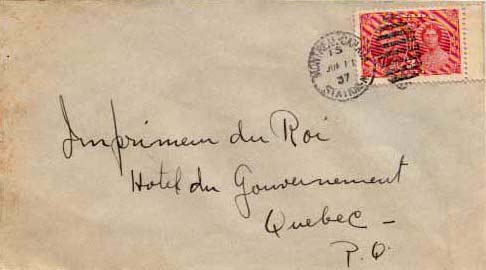 MONTREAL, CANADA
15
JUN 11
37
STATION
Imprimeur du Roi
Hotel du Gouvernement
Quebec -
P.Q.